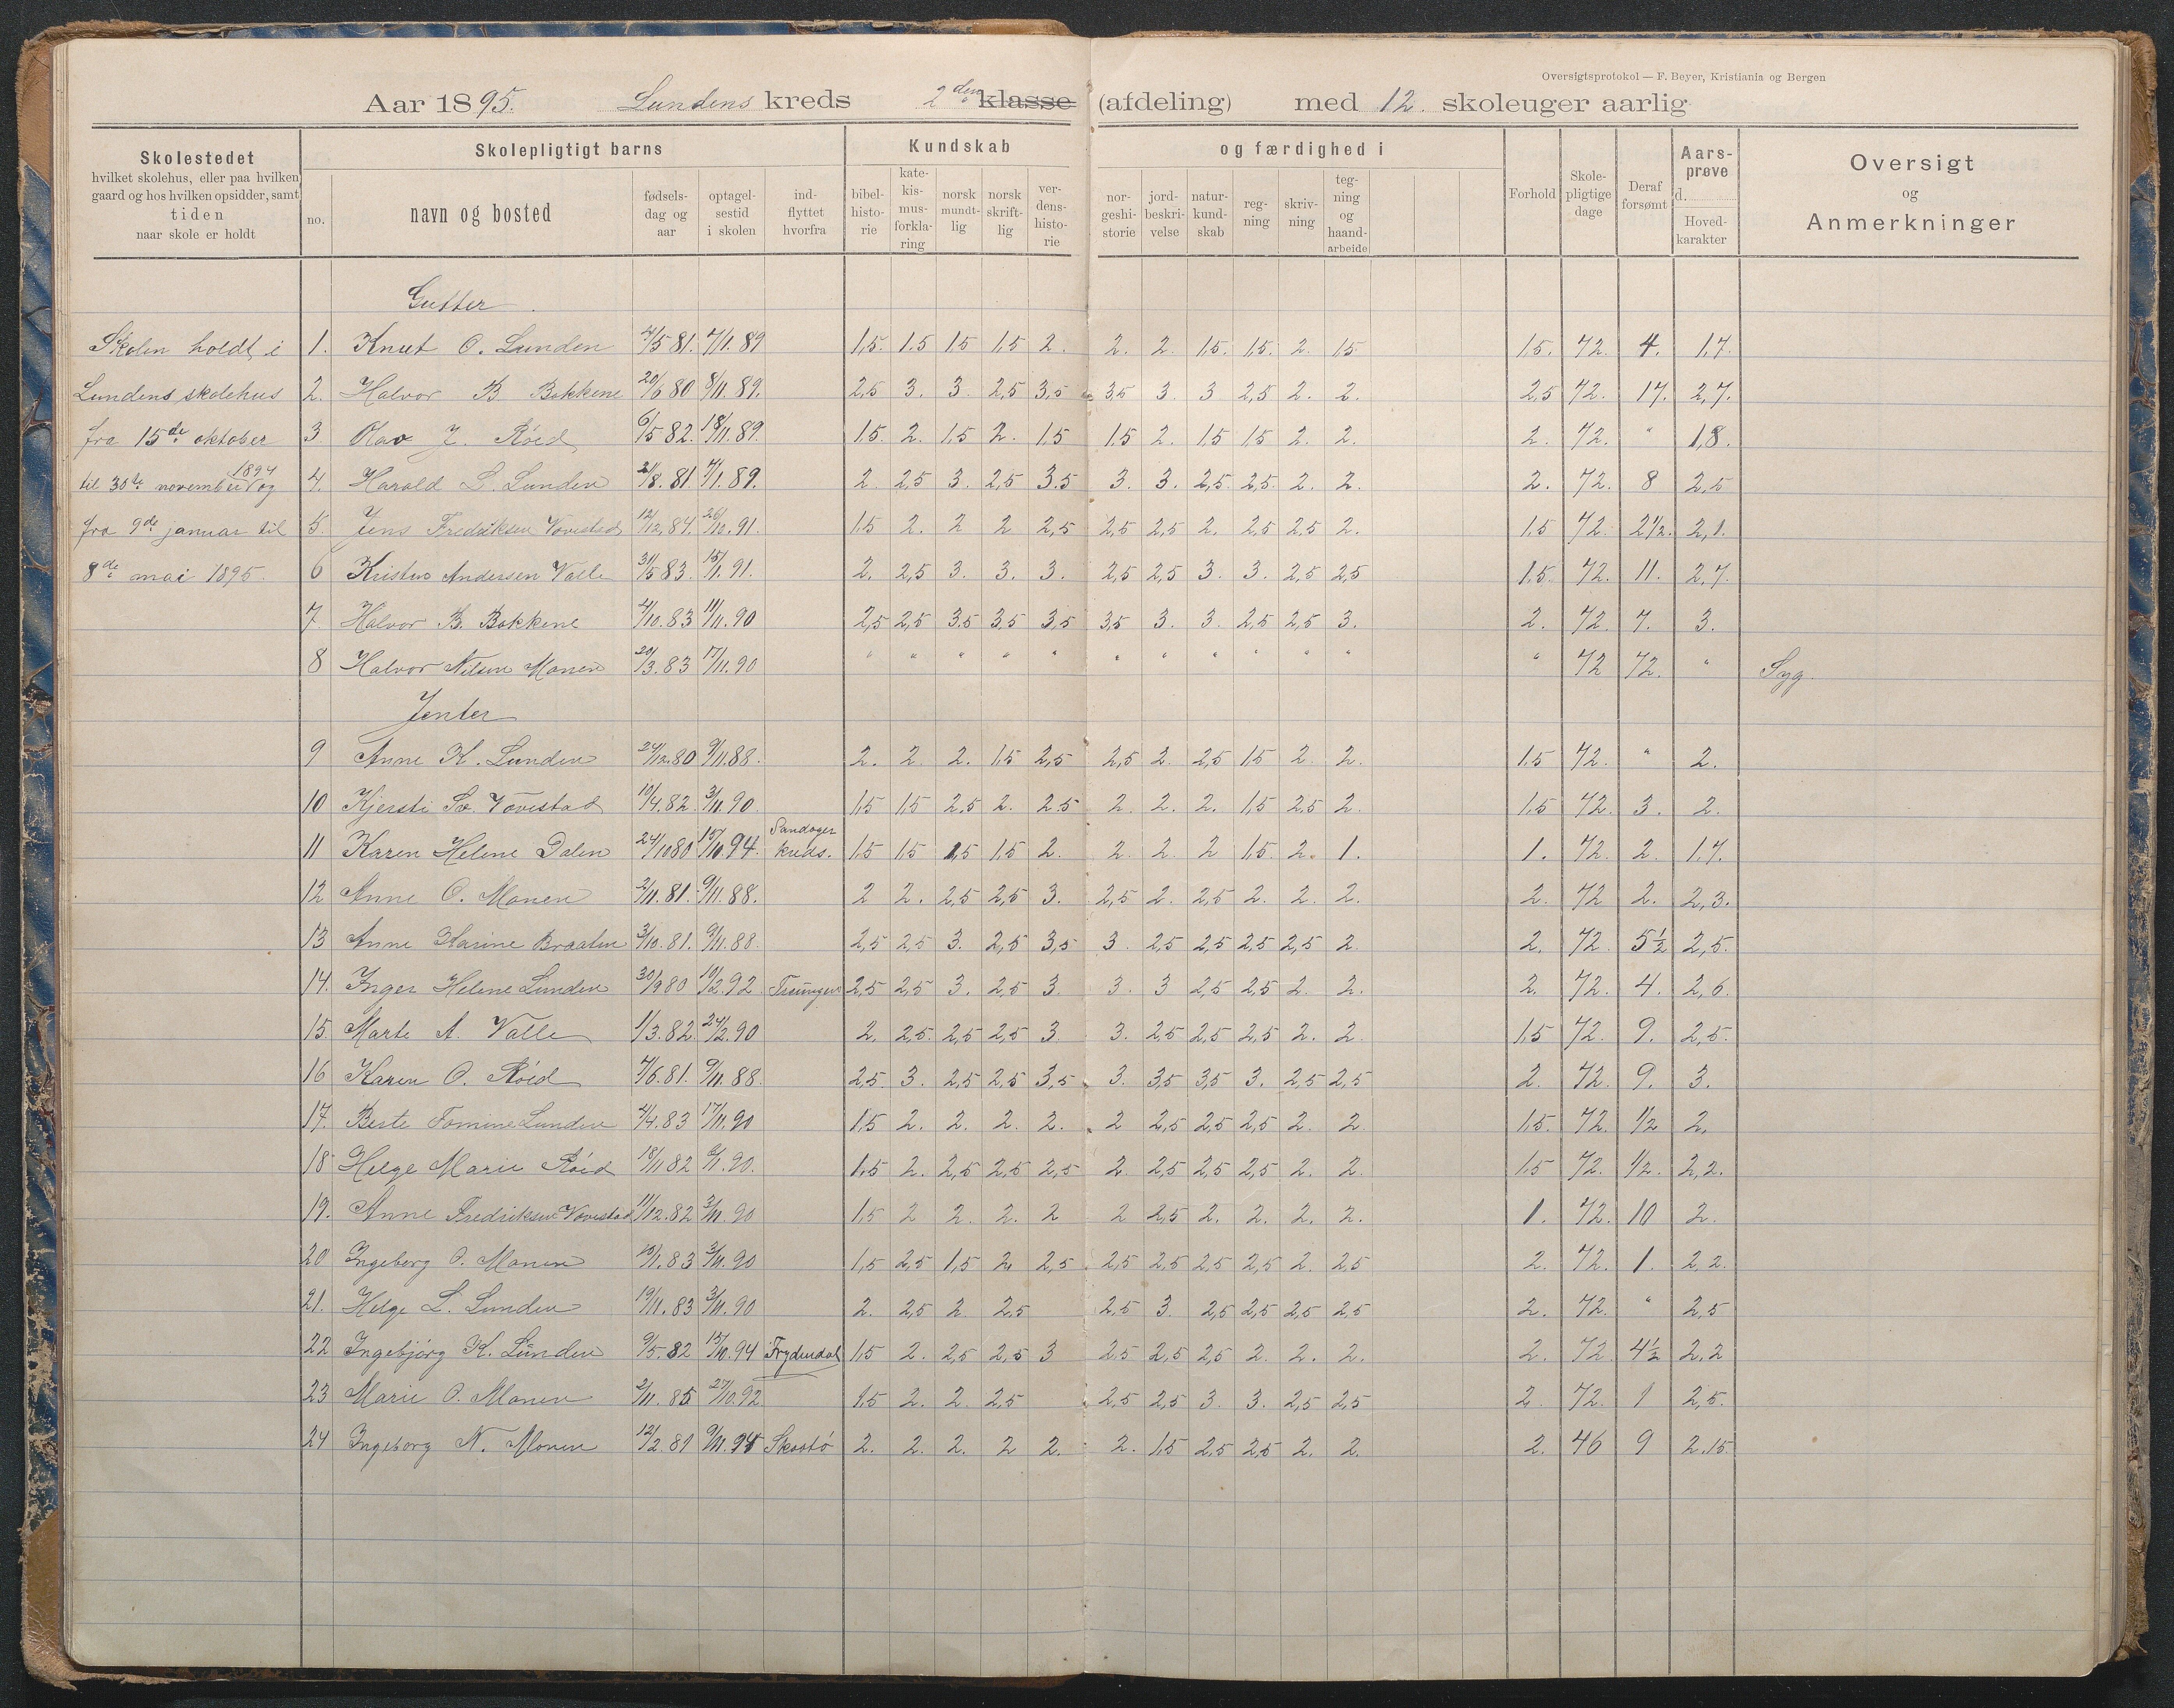 Oversigtsprotokol — F. Beyer, Kristiania og Bergen
Aar 1895. Lundens kreds 2den klasse (afdeling) med 12. skoleuger aarlig
Skolestedet
hvilket skolehus, eller paa hvilken
gaard og hos hvilken opsidder, samt
tiden
naar skole er holdt
Skolepligtigt barns
no.
navn og bosted
fødsels-
dag og
aar
optagel-
sestid
i skolen
ind-
flyttet
hvorfra
Kundskab og færdighed i
bibel-
histo-
rie
kate-
kis-
mus-
forkla-
ring
norsk
mundt-
lig
norsk
skrift-
lig
ver-
dens-
histo-
rie
nor-
geshi-
storie
jord-
beskri-
velse
natur-
kund-
skab
reg-
ning
skriv-
ning
teg-
ning
og
haand-
arbeide
Forhold
Skole-
pligtige
dage
Deraf
forsømt
Aars-
prøve
d.
Hoved-
karakter
Oversigt
og
Anmerkninger
Gutter.
Skolen holdt i
Lundens skolehus
fra 15de oktober
til 30te november 1894 og
fra 9de januar til
8de mai 1895.
1. Knut O. Lunden 4/5 81. 7/1. 89 1,5. 1.5 1.5 1,5 2. 2. 2. 1,5. 1,5. 2. 1,5 1,5. 72. 4. 1,7.
2. Halvor B. Bakkene 20/6 80 8/11. 89. 2,5 3. 3. 2,5 3,5 3,5 3. 3 2,5 2. 2. 2,5 72. 17. 2,7.
3. Olav J. Röed 6/5 82. 18/11. 89. 1.5. 2. 1,5 2. 1,5 1,5 2. 1,5 1,5 2. 2. 2. 72. " 1,8.
4. Harald L. Lunden 21/8. 81. 7/1. 89. 2 2,5 3. 2,5 3.5 3. 3. 2,5. 2,5. 2. 2. 2. 72. 8 2,5
5. Jens Fredriksen Vovestad 12/12. 84. 26/10. 91. 1,5 2. 2 2 2,5 2,5 2,5 2. 2,5 2,5 2. 1,5 72. 2 1/2. 2,1.
6 Kristen Andersen Valle 31/5 83. 15/1. 91. 2. 2,5 3. 3. 3. 2,5 2,5 3. 3. 2,5 2,5 1,5. 72. 11. 2,7.
7. Halvor B. Bakkene 4/10. 83 11/11. 90 2,5 2,5 3.5 3.5 3,5 3,5 3. 3. 2,5 2,5 3. 2. 72. 7. 3.
8 Halvor Nilsen Monen 20/3. 83 17/11. 90 " " " " " " " " " " " " 72 72. " Syg.
Jenter
9 Anne K. Lunden 24/12. 80 9/11. 88. 2. 2. 2. 1,5 2,5 2,5 2. 2,5 1,5 2 2. 1.5 72. " 2.
10 Kjersti So. Vovestad 10/4. 82. 3/11. 90. 1,5 1,5 2,5 2. 2.5 2. 2. 2. 1,5 2,5 2. 1,5 72. 3. 2.
11 Karen Helene Dalen 24/10 80 15/10. 94. Sandøger kreds. 1,5 1,5 1,5 1,5 2. 2. 2. 2 1,5. 2. 1. 1. 72. 2. 1.7.
12 Anne O. Monen 2/11. 81. 9/11. 88. 2 2. 2,5 2,5 3. 2,5 2. 2,5 2. 2. 2. 2. 72 2. 2,3.
13 Anne Karine Braaten 3/10. 81. 9/11. 88. 2,5 2,5 3. 2,5 3,5 3. 2,5 2,5 2,5 2,5 2. 2. 72. 5 1/2 2,5.
14. Inger Helene Lunden 30/9 80 19/2. 92 Treungen 2,5 2,5 3. 2,5 3. 3. 3 2,5 2,5 2. 2. 2. 72. 4. 2,6.
15. Marte A. Valle 1/3. 82. 24/2. 90 2. 2,5. 2,5 2,5 3. 3. 2,5 2,5 2,5 2. 2. 1,5 72. 9. 2,5.
16 Karen O. Röed 7/6. 81. 9/11. 88. 2,5. 3. 2,5 2,5 3,5 3. 3,5 3,5 3. 2,5 2,5 2. 72. 9. 3.
17. Berte Tomine Lunden 4/4. 83 17/11. 90 1,5 2. 2. 2. 2. 2 2,5 2,5 2,5 2. 2. 1,5. 72. 1/2 2.
18 Helge Marie Röed 18/11 82 9/1. 90. 1,5 2. 2,5 2,5 2,5 2. 2,5 2,5 2,5 2. 2. 1,5 72. 1/2. 2,2.
19. Anne Fredriksen Vovestad 11/12. 82 3/11. 90 1,5 2 2. 2. 2 2 2,5 2. 2. 2. 2. 1. 72. 10 2.
20 Ingeborg O. Monen 13/1. 83 3/11. 90 1,5 2,5 1,5 2. 2,5 2,5 2,5 2,5 2,5 2. 2,5 2. 72. 1. 2,2.
21. Helge L. Lunden 19/11. 83 3/11. 90 2. 2,5 2 2,5 2,5 3. 2,5 2,5 2,5 2,5 2. 72. " 2,5
22 Ingebjörg K. Lunden 9/5. 82 15/10. 94 Frydendal 1,5 2. 2,5 2,5 3 2,5 2,5 2,5 2. 2. 2. 2. 72. 4 1/2 2,2
23 Marie O. Monen 2/11. 85 27/10. 92 1,5 2. 2. 2,5 2,5 2,5 3. 3. 2,5 2,5 2. 72. 1 2,5.
24 Ingeborg N. Monen 12/2. 81 9/11. 95 Skaatö 2. 2. 2. 2 2. 2. 1,5 2,5 2,5 2. 2. 2. 46 9 2.15